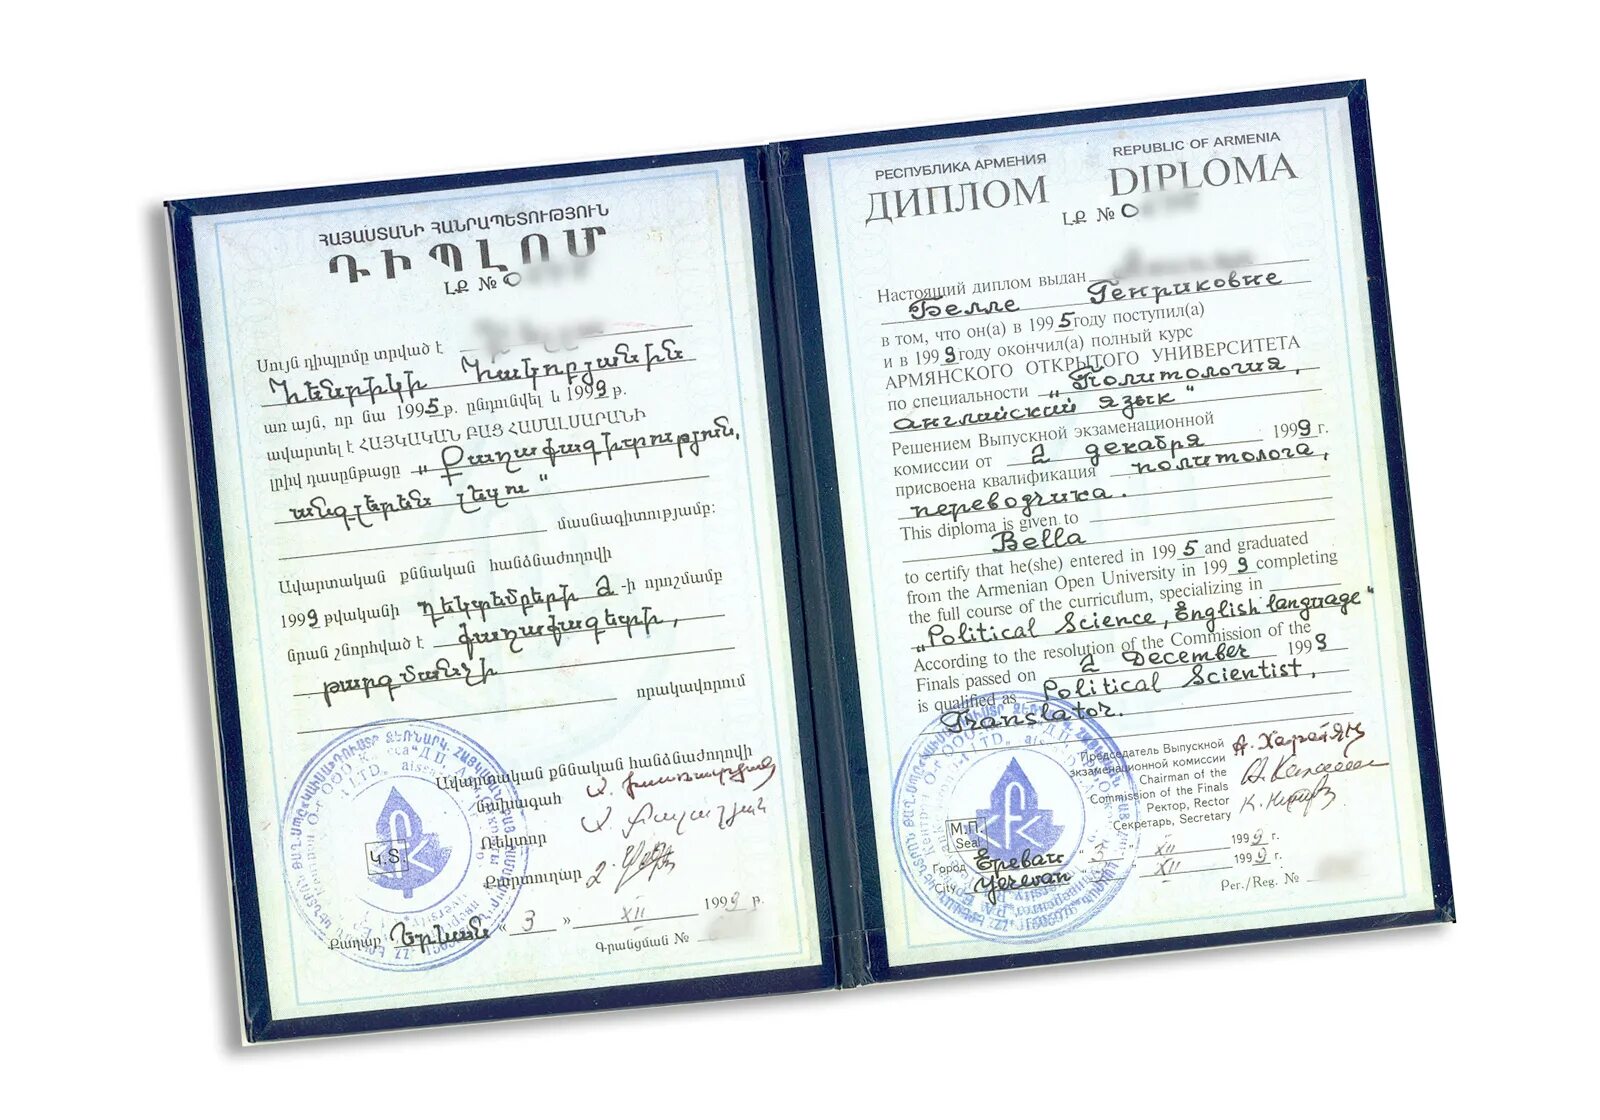 ՀԱՅԱՍՏԱՆԻ ՀԱՆՐԱՊԵՏՈՒԹՅՈՒՆ
ԴԻՊԼՈՄ
ԼՔ № 0
Սույն դիպլոմը տրված է
Հենրիկի Հակոբյանին
առ այն, որ նա 1995թ. ընդունվել և 1999թ.
ավարտել է ՀԱՅԿԱԿԱՆ ԲԱՑ ՀԱՄԱԼՍԱՐԱՆԻ
լրիվ դասընթացը „Քաղաքագիտություն,
անգլերեն լեզու"
մասնագիտությամբ:
Ավարտական քննական հանձնաժողովի
1999 թվականի դեկտեմբերի 2-ի որոշմամբ
նրան շնորհված է քաղաքագետի,
թարգմանչի
որակավորում
Ավարտական քննական հանձնաժողովի
նախագահ
Ռեկտոր
Քարտուղար
Կ.Տ.
Քաղաք Երևան „ 3 " XII 1999 թ.
Գրանցման №
РЕСПУБЛИКА АРМЕНИЯ
ДИПЛОМ
REPUBLIC OF ARMENIA
DIPLOMA
ԼՔ № 0
Настоящий диплом выдан
Белле Генриковне
в том, что он(а) в 1995 году поступил(а)
и в 1999 году окончил(а) полный курс
АРМЯНСКОГО ОТКРЫТОГО УНИВЕРСИТЕТА
по специальности „Политология,
английский язык"
Решением Выпускной экзаменационной
комиссии от 2 декабря 1999 г.
присвоена квалификация политолога,
переводчика.
This diploma is given to
Bella
to certify that he(she) entered in 1995 and graduated
from the Armenian Open University in 1999 completing
the full course of the curriculum, specializing in
„Political Science, English language"
According to the resolution of the Commission of the
Finals passed on 2 December 1999
is qualified as Political Scientist,
Translator.
Председатель Выпускной
экзаменационной комиссии
Chairman of the
Commission of the Finals
Ректор, Rector
Секретарь, Secretary
М.П.
Seal
Город Ереван „ 3 " XII 1999 г.
City Yerevan XII 1999 г.
Рег./Reg. №